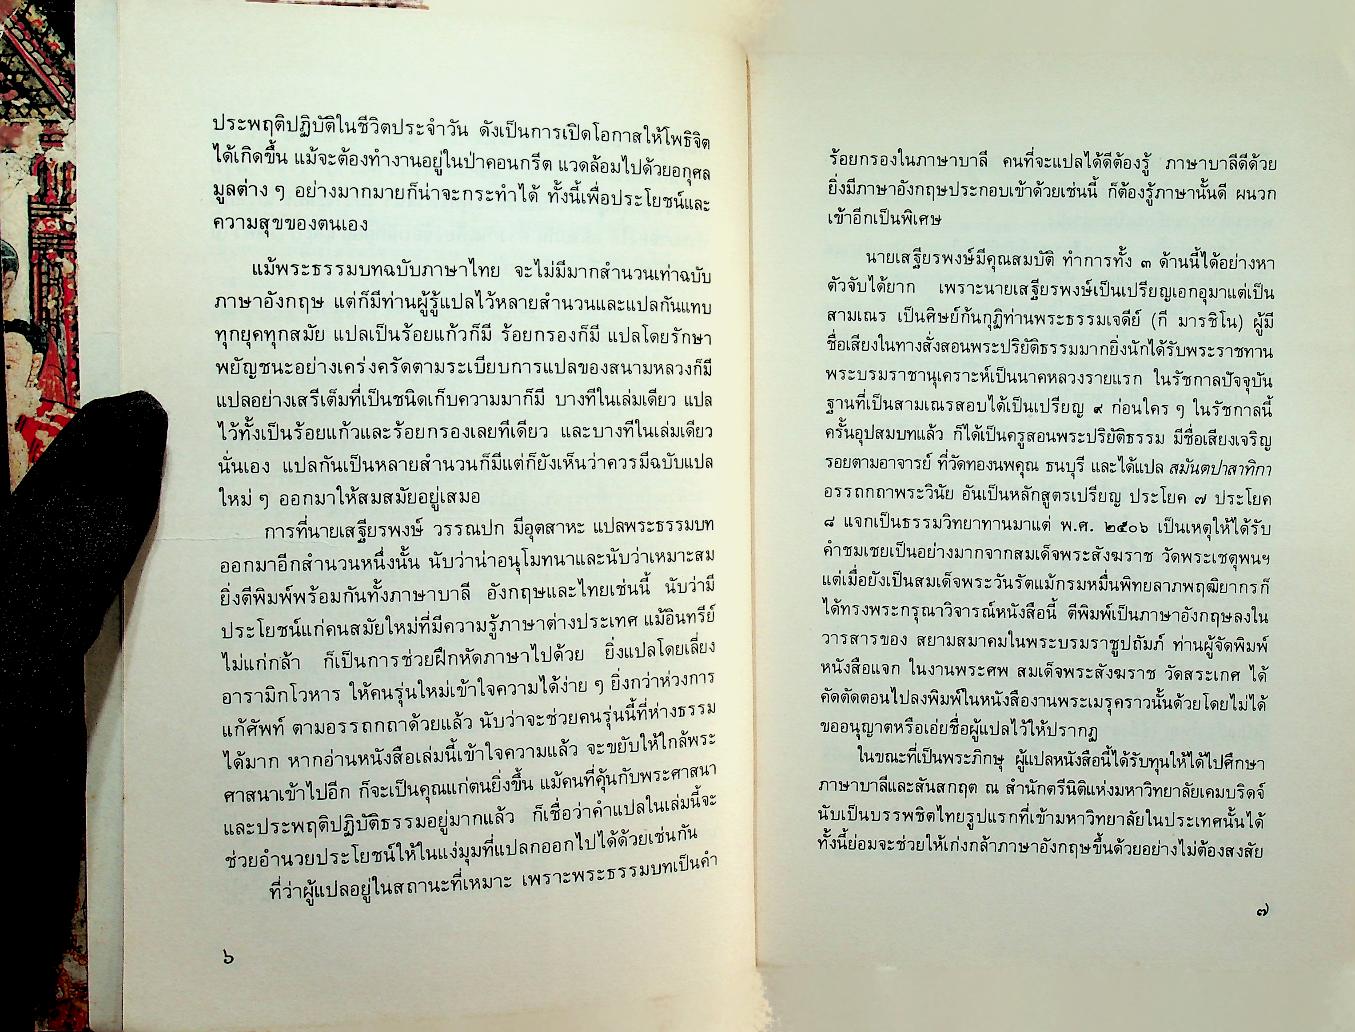 ประพฤติปฏิบัติในชีวิตประจำวัน ดังเป็นการเปิดโอกาสให้โพธิจิต
ได้เกิดขึ้น แม้จะต้องทำงานอยู่ในป่าคอนกรีต แวดล้อมไปด้วยอกุศล
มูลต่าง ๆ อย่างมากมายก็น่าจะกระทำได้ ทั้งนี้เพื่อประโยชน์และ
ความสุขของตนเอง
แม้พระธรรมบทฉบับภาษาไทย จะไม่มีมากสำนวนเท่าฉบับ
ภาษาอังกฤษ แต่ก็มีท่านผู้รู้แปลไว้หลายสำนวนและแปลกันแทบ
ทุกยุคทุกสมัย แปลเป็นร้อยแก้วก็มี ร้อยกรองก็มี แปลโดยรักษา
พยัญชนะอย่างเคร่งครัดตามระเบียบการแปลของสนามหลวงก็มี
แปลอย่างเสรีเต็มที่เป็นชนิดเก็บความมาก็มี บางทีในเล่มเดียว แปล
ไว้ทั้งเป็นร้อยแก้วและร้อยกรองเลยทีเดียว และบางทีในเล่มเดียว
นั่นเอง แปลกันเป็นหลายสำนวนก็มีแต่ก็ยังเห็นว่าควรมีฉบับแปล
ใหม่ ๆ ออกมาให้สมสมัยอยู่เสมอ
การที่นายเสฐียรพงษ์ วรรณปก มีอุตสาหะ แปลพระธรรมบท
ออกมาอีกสำนวนหนึ่งนั้น นับว่าน่าอนุโมทนาและนับว่าเหมาะสม
ยิ่งตีพิมพ์พร้อมกันทั้งภาษาบาลี อังกฤษและไทยเช่นนี้ นับว่ามี
ประโยชน์แก่คนสมัยใหม่ที่มีความรู้ภาษาต่างประเทศ แม้อินทรีย์
ไม่แก่กล้า ก็เป็นการช่วยฝึกหัดภาษาไปด้วย ยิ่งแปลโดยเลี่ยง
อารามิกโวหาร ให้คนรุ่นใหม่เข้าใจความได้ง่าย ๆ ยิ่งกว่าห่วงการ
แก้ศัพท์ ตามอรรถกถาด้วยแล้ว นับว่าจะช่วยคนรุ่นนี้ที่ห่างธรรม
ได้มาก หากอ่านหนังสือเล่มนี้เข้าใจความแล้ว จะขยับให้ใกล้พระ
ศาสนาเข้าไปอีก ก็จะเป็นคุณแก่ตนยิ่งขึ้น แม้คนที่คุ้นกับพระศาสนา
และประพฤติปฏิบัติธรรมอยู่มากแล้ว ก็เชื่อว่าคำแปลในเล่มนี้จะ
ช่วยอำนวยประโยชน์ให้ในแง่มุมที่แปลกออกไปได้ด้วยเช่นกัน
ที่ว่าผู้แปลอยู่ในสถานะที่เหมาะ เพราะพระธรรมบทเป็นคำ
๖
ร้อยกรองในภาษาบาลี คนที่จะแปลได้ดีต้องรู้ ภาษาบาลีดีด้วย
ยิ่งมีภาษาอังกฤษประกอบเข้าด้วยเช่นนี้ ก็ต้องรู้ภาษานั้นดี ผนวก
เข้าอีกเป็นพิเศษ
นายเสฐียรพงษ์มีคุณสมบัติ ทำการทั้ง ๓ ด้านนี้ได้อย่างหา
ตัวจับได้ยาก เพราะนายเสฐียรพงษ์เป็นเปรียญเอกอุมาแต่เป็น
สามเณร เป็นศิษย์ก้นกุฏิท่านพระธรรมเจดีย์ (กี มารชิโน) ผู้มี
ชื่อเสียงในทางสั่งสอนพระปริยัติธรรมมากยิ่งนักได้รับพระราชทาน
พระบรมราชานุเคราะห์เป็นนาคหลวงรายแรก ในรัชกาลปัจจุบัน
ฐานที่เป็นสามเณรสอบได้เป็นเปรียญ ๙ ก่อนใคร ๆ ในรัชกาลนี้
ครั้นอุปสมบทแล้ว ก็ได้เป็นครูสอนพระปริยัติธรรม มีชื่อเสียงเจริญ
รอยตามอาจารย์ ที่วัดทองนพคุณ ธนบุรี และได้แปล สมันตปาสาทิกา
อรรถกถาพระวินัย อันเป็นหลักสูตรเปรียญ ประโยค ๗ ประโยค
๘ แจกเป็นธรรมวิทยาทานมาแต่ พ.ศ. ๒๕๐๖ เป็นเหตุให้ได้รับ
คำชมเชยเป็นอย่างมากจากสมเด็จพระสังฆราช วัดพระเชตุพนฯ
แต่เมื่อยังเป็นสมเด็จพระวันรัตแม้กรมหมื่นพิทยลาภพฤฒิยากรก็
ได้ทรงพระกรุณาวิจารณ์หนังสือนี้ ตีพิมพ์เป็นภาษาอังกฤษลงใน
วารสารของ สยามสมาคมในพระบรมราชูปถัมภ์ ท่านผู้จัดพิมพ์
หนังสือแจก ในงานพระศพ สมเด็จพระสังฆราช วัดสระเกศ ได้
คัดตัดตอนไปลงพิมพ์ในหนังสืองานพระเมรุคราวนั้นด้วยโดยไม่ได้
ขออนุญาตหรือเอ่ยชื่อผู้แปลไว้ให้ปรากฏ
ในขณะที่เป็นพระภิกษุ ผู้แปลหนังสือนี้ได้รับทุนให้ได้ไปศึกษา
ภาษาบาลีและสันสกฤต ณ สำนักตรีนิติแห่งมหาวิทยาลัยเคมบริดจ์
นับเป็นบรรพชิตไทยรูปแรกที่เข้ามหาวิทยาลัยในประเทศนั้นได้
ทั้งนี้ย่อมจะช่วยให้เก่งกล้าภาษาอังกฤษขึ้นด้วยอย่างไม่ต้องสงสัย
๗